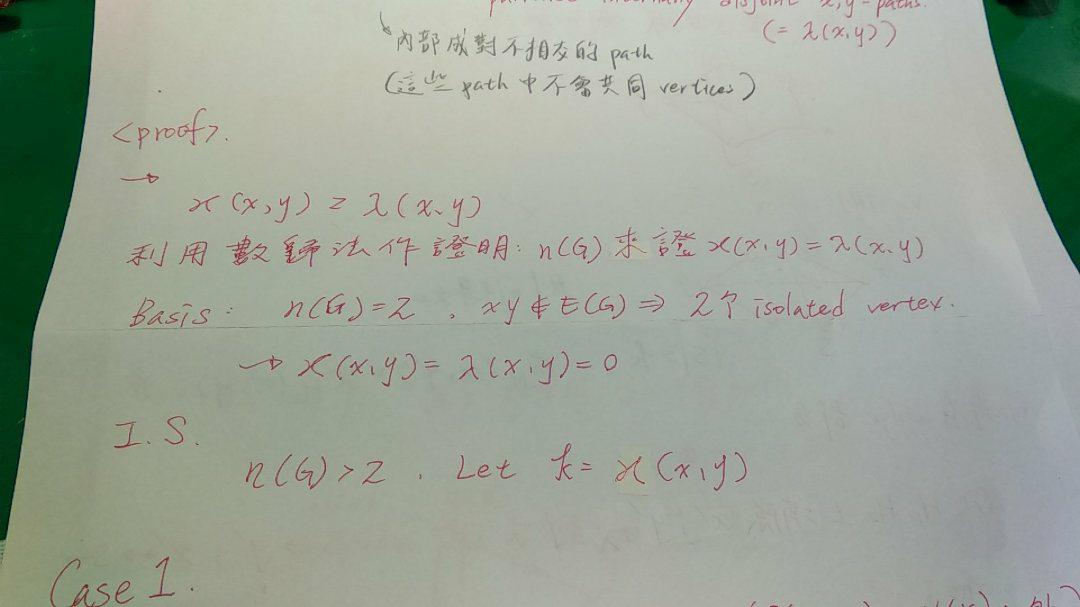 pairwise internally disjoint x,y-paths.
(= λ(x,y))
內部成對不相交的 path
(這些 path 中不會共同 vertices)
<proof>.
→
κ(x,y) ≥ λ(x,y)
利用數歸法作證明: n(G) 來證 κ(x,y) = λ(x,y)
Basis: n(G)=2, xy ∉ E(G) ⇒ 2个 isolated vertex.
→ κ(x,y) = λ(x,y) = 0
I.S.
n(G)>2. Let k = κ(x,y)
Case 1.